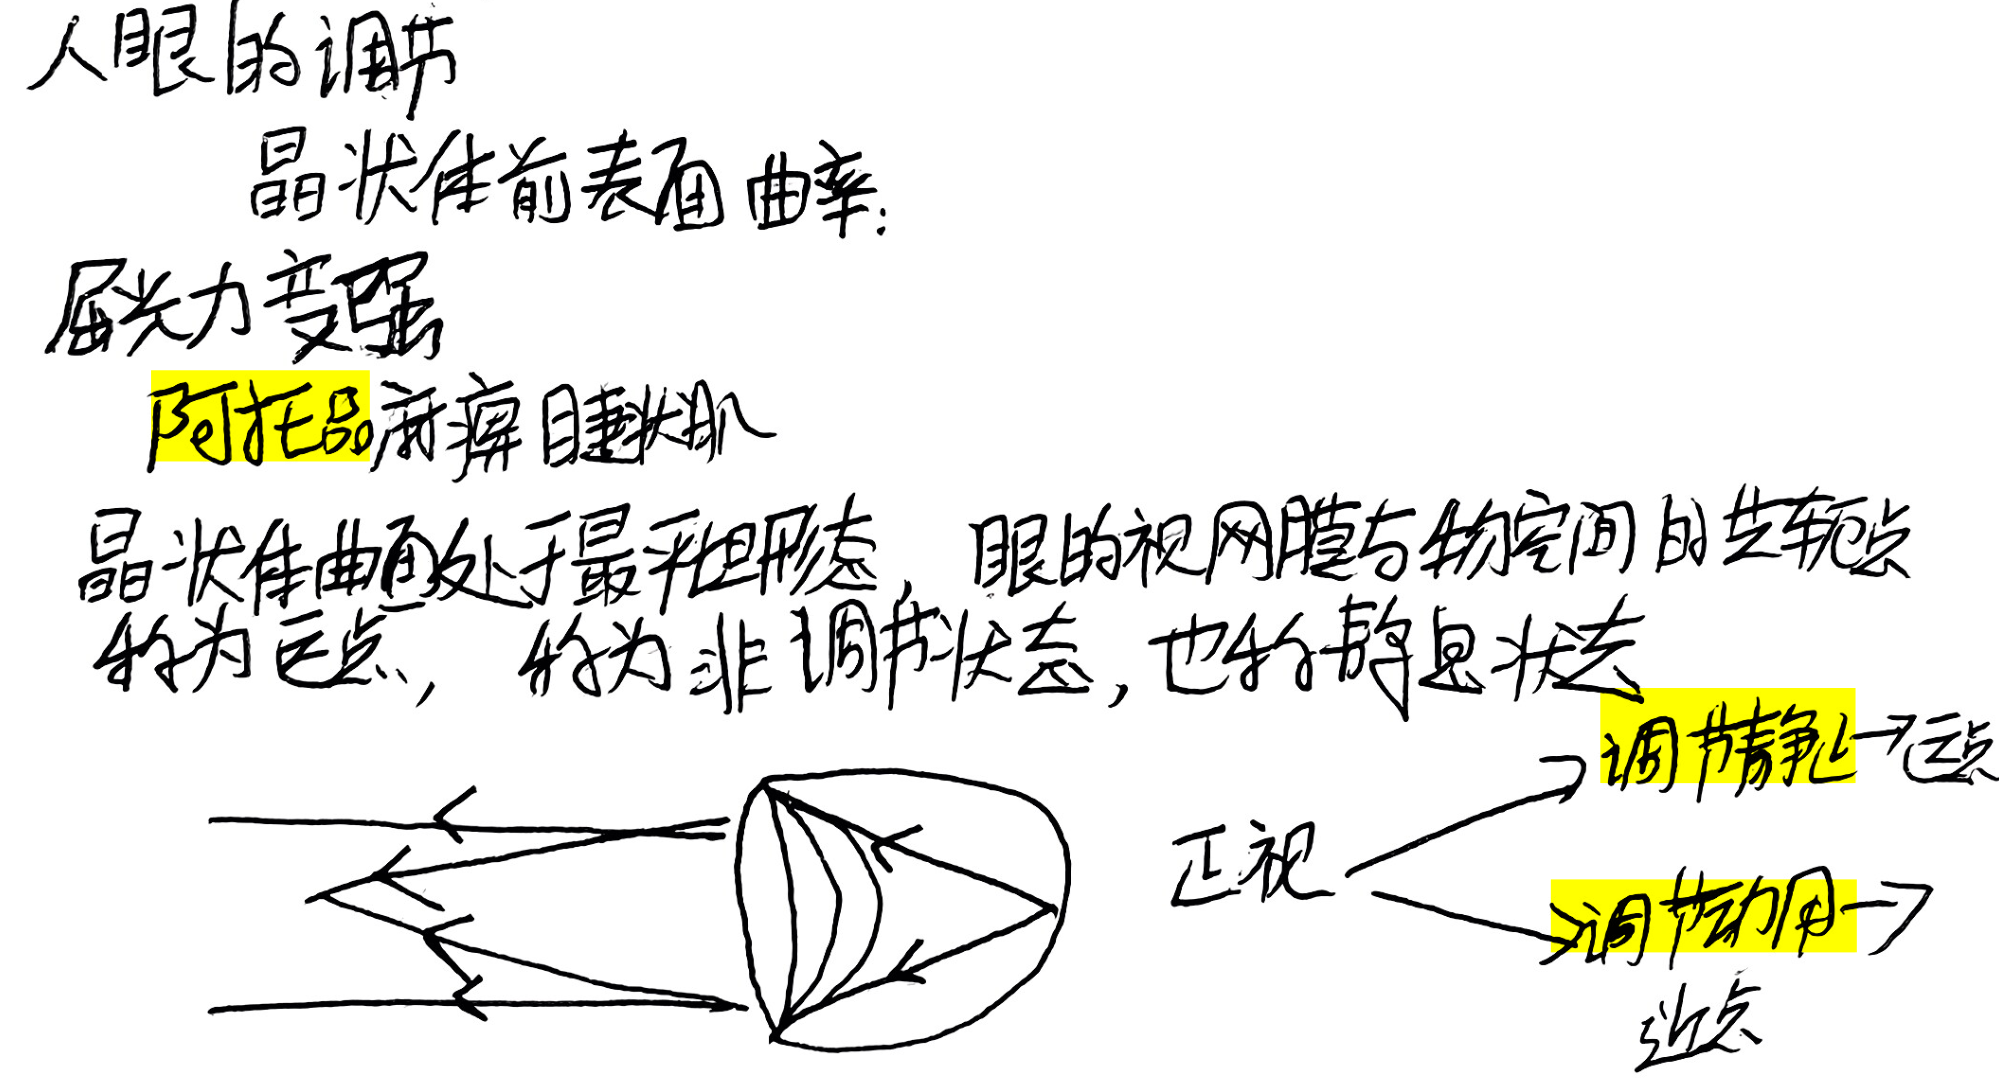 人眼的调节
晶状体前表面曲率:
屈光力变强
阿托品麻痹睫状肌
晶状体曲面处于最平坦形态, 眼的视网膜与物空间的共轭点
称为远点, 称为非调节状态, 也称静息状态
调节静止→远点
正视
调节动用→
近点